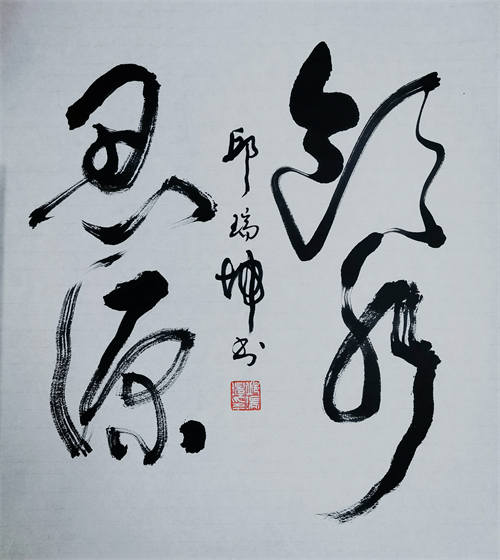 飲水
思源
邱瑞坤书